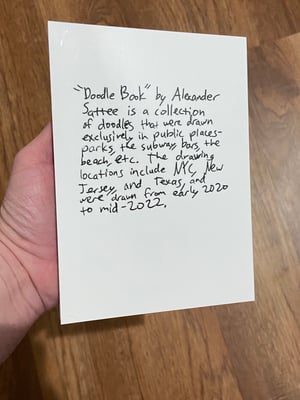 "Doodle Book" by Alexander
Sattee is a collection
of doodles that were drawn
exclusively in public places-
parks, the subway, bars, the
beach, etc. The drawing
locations include NYC, New
Jersey, and Texas, and
were drawn from early 2020
to mid-2022.